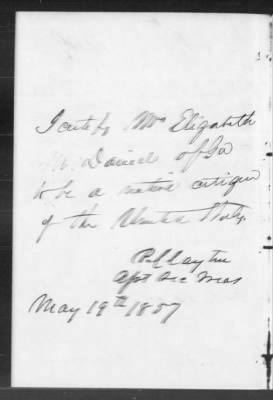 I certify Mrs Elizabeth
M. Daniel of Ga
to be a native citizen
of the United States
P. Clayton
Asst Sec Treas
May 19th 1857